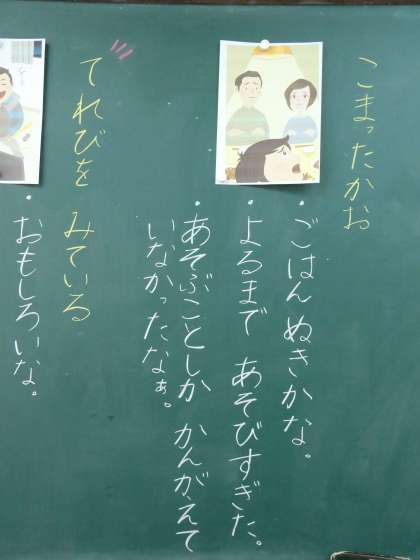 こまったかお
・ごはんぬきかな。
・よるまで あそびすぎた。
・あそぶことしか かんがえて
いなかったなぁ。
てれびを みている
・おもしろいな。